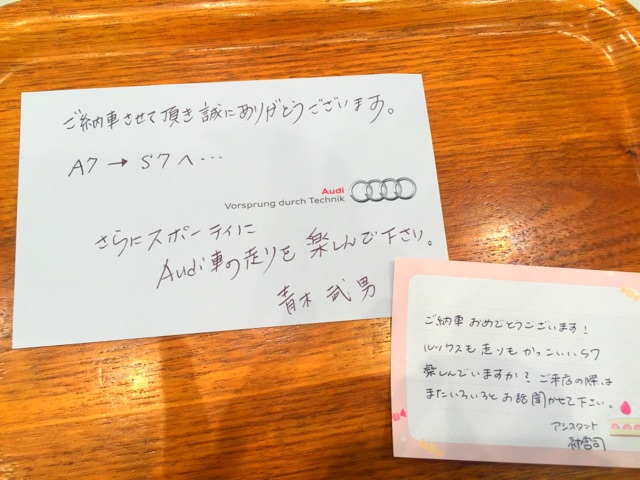 ご納車させて頂き誠にありがとうございます。
A7 → S7へ…
Audi
Vorsprung durch Technik
さらにスポーティに
Audi車の走りを楽しんで下さい。
青木 武男
ご納車おめでとうございます!
ルックスも走りもかっこいいS7
楽しんでいますか?ご来店の際は
またいろいろとお話聞かせて下さい。
アシスタント